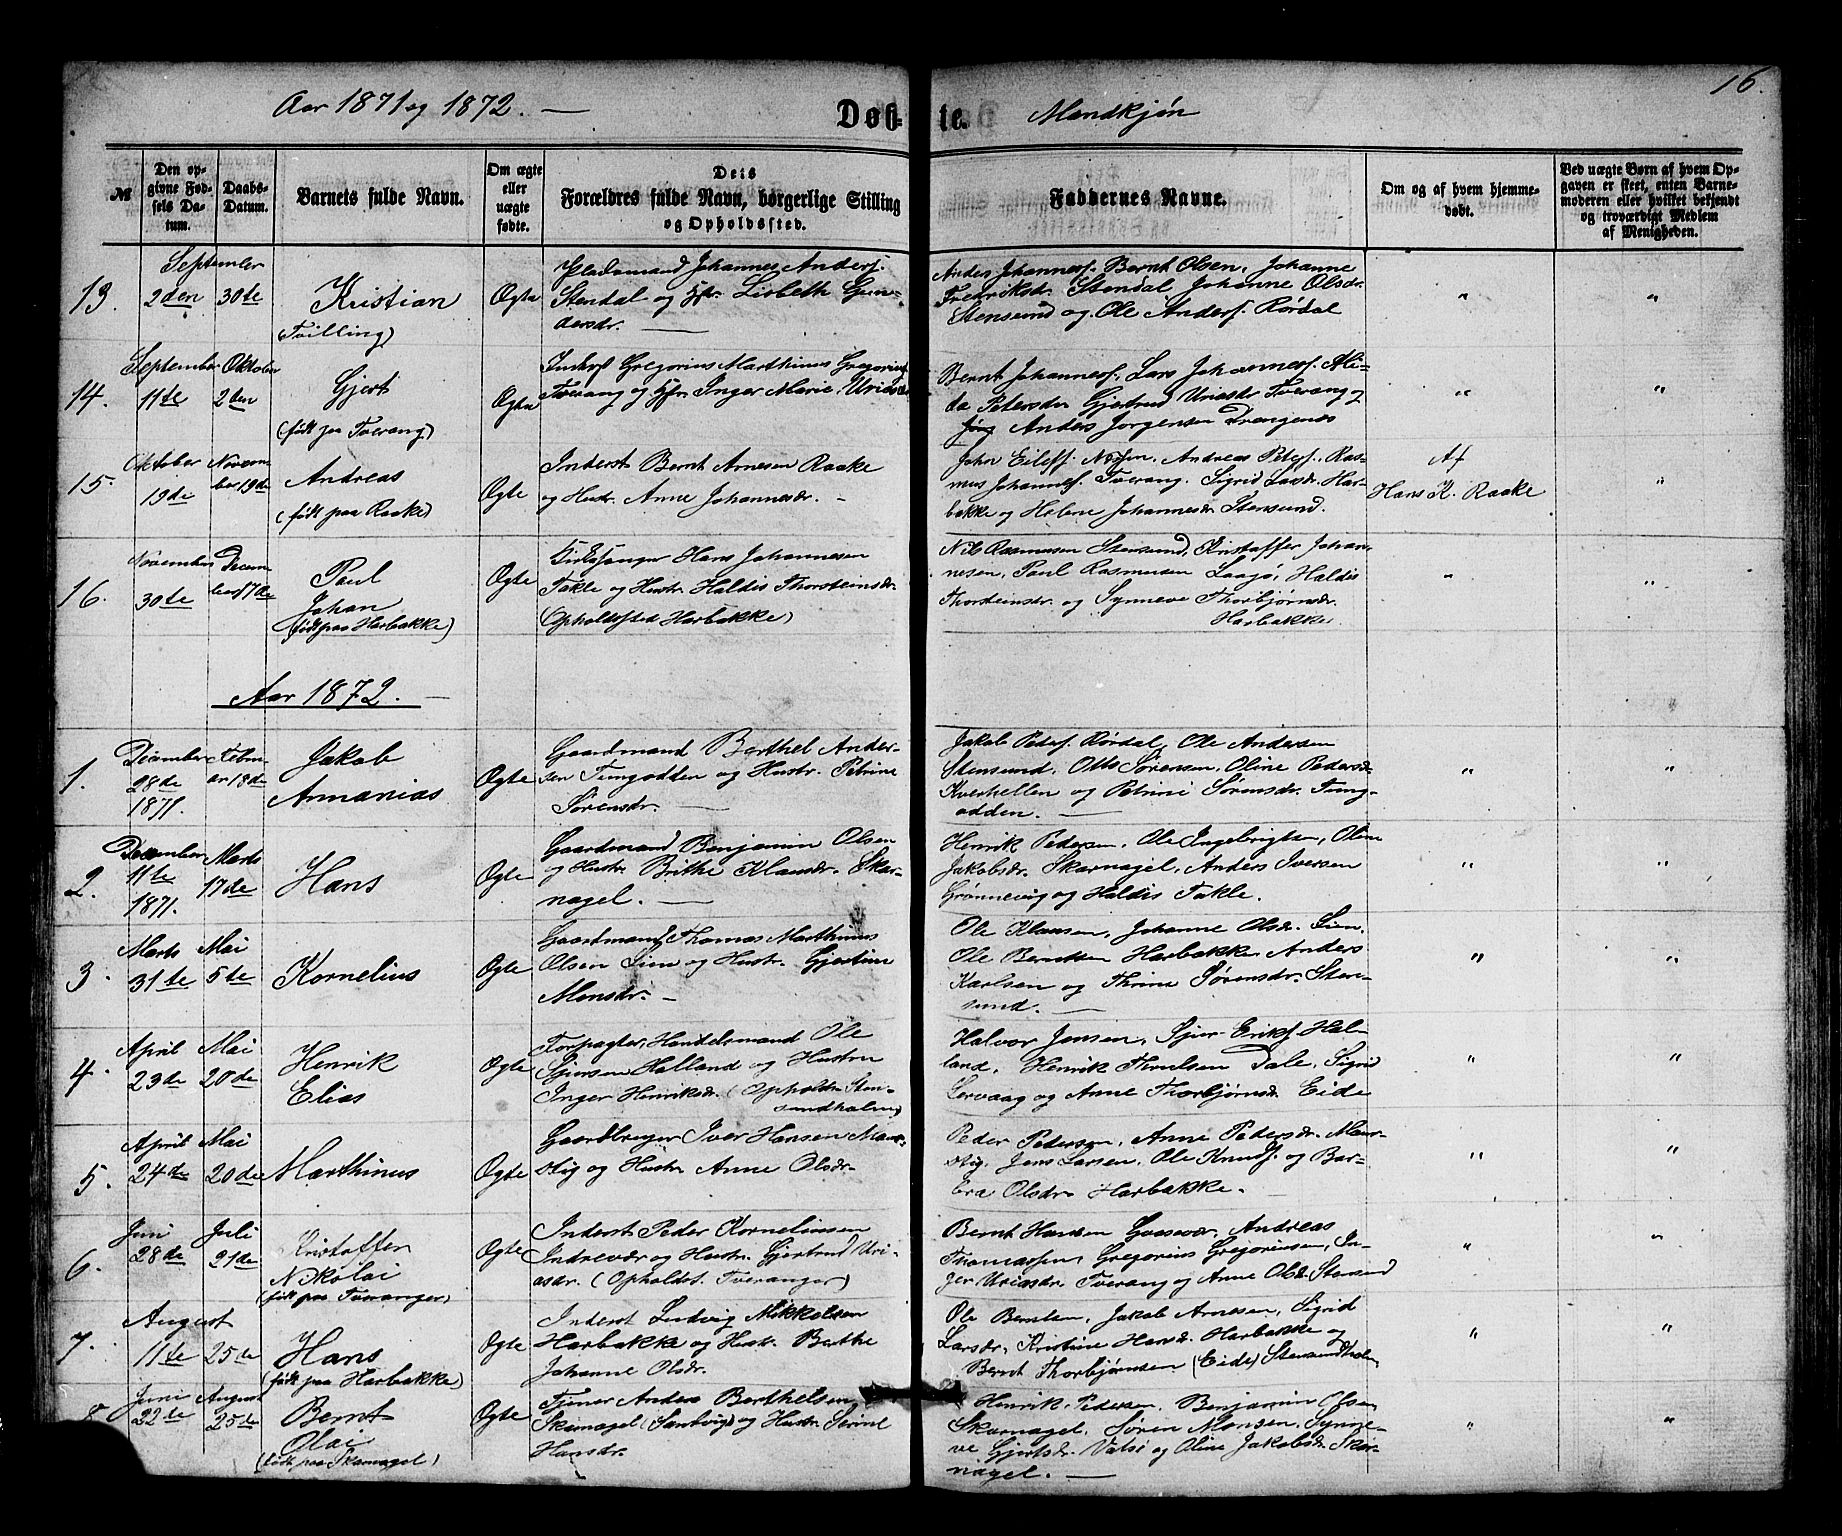 Aar 1871 og 1872. — Døbte. Mandkjøn 16.
№
Den opgivne Fødsels Datum.
Daabs-Datum.
Barnets fulde Navn.
Om ægte eller uægte fødte.
Dets Forældres fulde Navn, borgerlige Stilling og Opholdssted.
Faddernes Navne.
Om og af hvem hjemmedøbt.
Ved uægte Børn af hvem Opgaven er skeet, enten Barnemoderen eller hvilket bekjendt og troværdigt Medlem af Menigheden.
September
13. 2den 30te Kristian Ægte
(Tvilling)
Pladsmand Johannes Anders.
Stendal og Hstr. Lisbeth Gun-
dersdr. —
Anders Johannes. Bernt Olsen, Johanne
Fredriksdr. Stendal Johanne Olsdr.
Stensund og Ole Anders. Rørdal
" "
September Oktober
14. 11te 2den Gjert Ægte
(født paa Tverang)
Inderst Gregorius Marthinus Gregorius
Tverang og Hstr. Inger Marie Uriasdr
Bernt Johannes. Lars Johannes. Ali-
da Petersdr Gjertrud Uriasdr Tverang og
Anders Jorgensen Drengenes
" "
Oktober Novem-
15. 19de ber 19de Andreas Ægte
(født paa Raake)
Inderst Bernt Arnesen Raake
og Hustr. Anne Johannesdr. -
John Eilef. Andreas Peters. Ras-
mus Johannes. Tverang. Sigrid Larsdr. Har-
bakke og Helene Johannesdr. Stensund.
Af
Hans K. Raake "
November Decem-
16. 30te ber 17de Paul Ægte
Johan
(født paa Harbakke)
Kirkesanger Hans Johannesen
Takle og Hustr. Haldis Thorsteinsdr.
(Opholdssted Harbakke)
Nils Rasmusen Stensund, Kristoffer Johan-
nesen, Paul Rasmusen Laagø, Haldis
Thorsteinsdr. og Synneve Thorbjørnsdr.
Harbakke
" "
Aar 1872. —
December Febru-
1. 28de ar 18de Jakob Ægte
1871. Annanias
Gaardmand Berthel Ander-
sen Tungodden og Hustr. Petrine
Sørensdr. —
Jakob Peders. Rørdal, Ole Andersen
Stensund, Otto Sørensen, Oline Pedersdr
Kverhellen og Petrine Sørensdr. Tung-
odden. —
" "
December Marts
2. 11te 17de Hans Ægte
1871.
Gaardmand Benjamin Olsen
og Hustr. Brithe Klausdr. Skar-
nagel. —
Henrik Pedersen, Ole Ingebrigtsen, Oline
Jakobsdr. Skarnagel, Anders Iversen
Grønnevig og Haldis Takle.
" "
Marts Mai
3. 31te 5te Kornelius Ægte
Gaardmand Thomas Marthinus
Olsen Lien og Hustr. Gjertine
Monsdr. -
Ole Klausen, Johanne Olsdr. Lien.
Ole Berntsen Harbakke Anders
Karlsen og Thrine Sørensdr. Sten-
sund. —
" "
April Mai
4. 23de 20de Henrik Ægte
Elias
Forpagter, Handelsmand Ole
Sjursen Halland og Hustru
Inger Henriksdr. (Opholdr. Sten-
sundholm)
Halvor Jensen, Sjur Eriks. Hal-
land, Henrik Thrulsen Dale, Sigrid
Lervaag og Anne Thorbjørnsdr. Eide
" "
April Mai
5. 24de 20de Marthinus Ægte
Gaardbruger Iver Hansen Maur-
stig og Hustr Anne Olsdr.
Peder Pedersen, Anne Pedersdr. Maur-
stig. Jens Larsen, Ole Knuds. og Bar-
bra Olsdr. Harbakke.
" "
Juni Juli
6. 28de 21de Kristoffer Ægte
Nikolai
(født paa Tveranger)
Inderst Peder Korneliusen
Indrevær og Hustr. Gjertrud Uri-
asdr. (Opholds. Tveranger)
Bernt Hansen Gaasvær, Andreas
Thomassen, Gregorius Gregoriussen, In-
ger Uriasdr. Tverang og Anne Olsdr. Stensund
" "
August
7. 11te 25de Hans Ægte
(født paa Harbakke)
Inderst Ludvig Mikkelsen
Harbakke og Hustr. Berthe
Johanne Olsdr.
Ole Berntsen, Jakob Arnesen, Sigrid
Larsdr, Kristine Hansdr. Harbakke og
Bernt Thorbjørnsen (Eide) Stensundholm
" "
Juni August
8. 22de 25de Bernt Ægte
Olai
(født paa Skarnagel)
Tjener Anders Berthelsen
Skarnagel (Sandvig) og Hustr.
Hansdr.
Henrik Pedersen, Benjamin Olsen
Skarnagel, Søren Monsen, Synne-
ve Gjertsdr. Valsø og Oline Jakobsdr. Skar-
nagel. —
" "